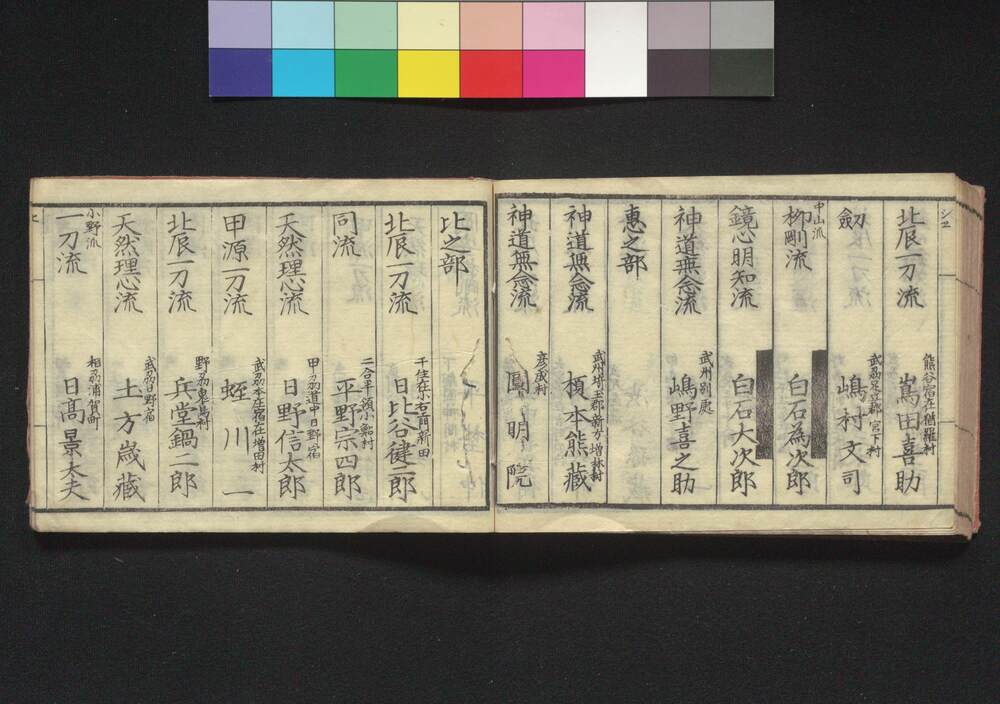 シヱ
北辰一刀流
熊谷宿在 村
嶌田喜助
劔
武刕足立郡宮下村
嶋村文司
中山派
柳剛流
白石為次郎
鏡心明知流
白石大次郎
神道無念流
武州別處
嶋野喜之助
惠之部
神道無念流
武州埼玉郡新方増林村
榎本熊藏
神道無念流
彦成村
鳳明院
比之部
北辰一刀流
千住在小右衛門新田
日比谷健二郎
同流
二合半領小 村
平野宗四郎
天然理心流
甲刕道中日野宿
日野信太郎
甲源一刀流
武刕本庄宿在増田村
蛭川一
北辰一刀流
野刕鬼島村
兵堂鍋二郎
天然理心流
武刕日野宿
土方歳藏
小野派
一刀流
相刕浦賀町
日髙景太夫
ヒ